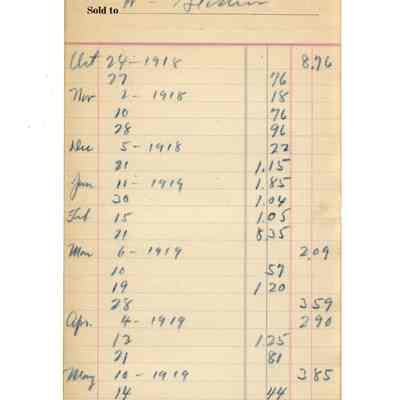 Sold to W -
Oct 24 - 1918 8.76
27 76
Nov 2 - 1918 18
10 76
28 96
Dec 5 - 1918 22
21 1.15
Jan 11 - 1919 1.85
20 1.04
Feb 15 1.05
21 8.35
Mar 6 - 1919 2.09
10 57
19 1.20
28 3.59
Apr. 4 - 1919 2.90
12 1.25
21 81
May 10 - 1919 3.85
14 44